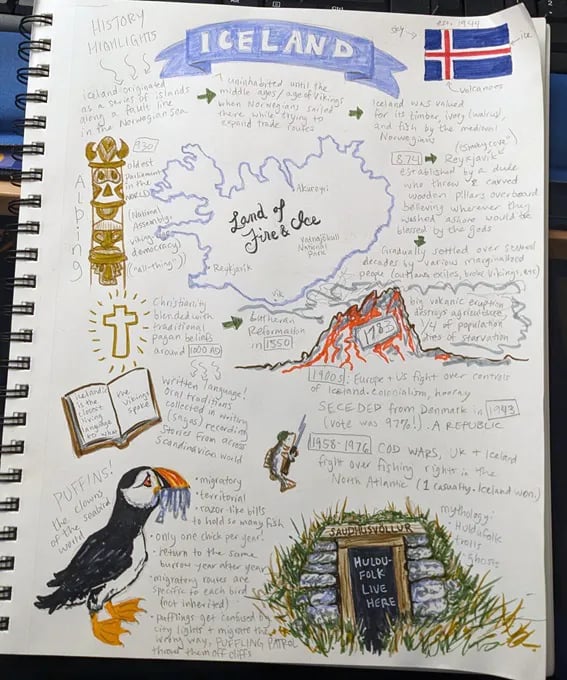 HISTORY
HIGHLIGHTS
ICELAND
est. 1944
sky
ice
volcanoes
Iceland originated
as a series of islands
along a fault line
in the Norwegian Sea
uninhabited until the
middle ages/age of Vikings
when Norwegians sailed
there while trying to
expand trade routes
Iceland was valued
for its timber, ivory (walrus),
and fish by the medieval
Norwegians
(smoky cove)
874 → Reykjavik
established by a dude
who threw 2 carved
wooden pillars overboard
believing wherever they
washed ashore would be
blessed by the gods
Gradually settled over several
decades by various marginalized
people (outlaws, exiles, broke Vikings, etc)
Alping
930
oldest
Parliament
in the
WORLD
(National
Assembly,
Vikings
democracy)
("all-thing")
Land of
Fire & Ice
Akureyri
Vatnajökull
National
Park
Reykjavik
Vik
Christianity
blended with
traditional
pagan beliefs
around 1000 AD
Lutheran
Reformation
in 1550
1783
big volcanic eruption
destroys agriculture
1/4 of population
dies of starvation
1900s: Europe + US fight over controls
of Iceland. colonialism, hooray
SECEDED from Denmark in 1943
(vote was 97%!). A REPUBLIC
1958-1976 COD WARS, UK + Iceland
fight over fishing rights in the
North Atlantic (1 casualty. Iceland won.)
Icelandic is
the closest
living
language
to what
the
Vikings
spoke
written language!
Oral traditions
collected in writing
(sagas) recording
stories from across
Scandinavian world
PUFFINS!
the clowns
of the seabird
world
• migratory
• territorial
• razor-like bills
to hold so many fish
• only one chick per year!
• return to the same
burrow year after year
• migratory routes are
specific to each bird
(not inherited)
• pufflings get confused by
city lights + migrate the
wrong way, PUFFLING PATROL
throws them off cliffs
mythology:
• Huldufolk
• trolls
• ghosts
HULDU-
FOLK
LIVE
HERE